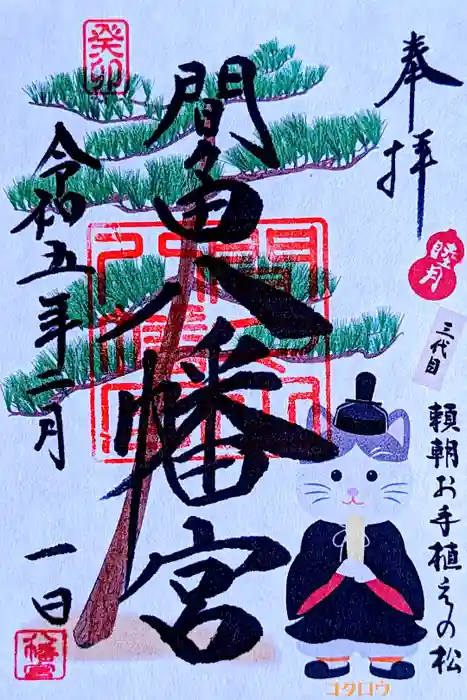 奉拝
睦月
三代目
頼朝お手植えの松
癸卯
間々田八幡宮
令和五年二月一日
八幡宮
コタロウ